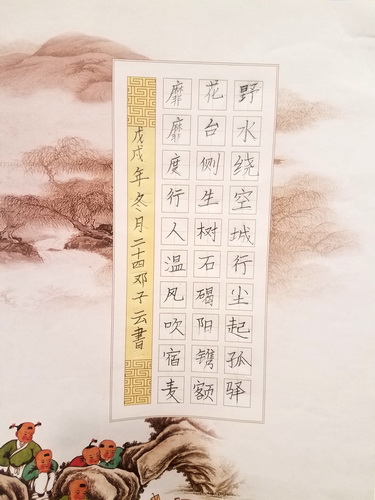 野水绕空城行尘起孤驿
花台侧生树石碣阳镌额
靡靡度行人温风吹宿麦
戊戌年冬月二十四邓子云書